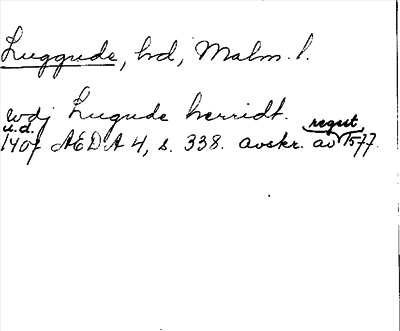 Luggude, hd, Malm. l.
wdj Lugude herridt.
u.d. regest
1407 AEDA 4, s. 338. avskr. av 1577.